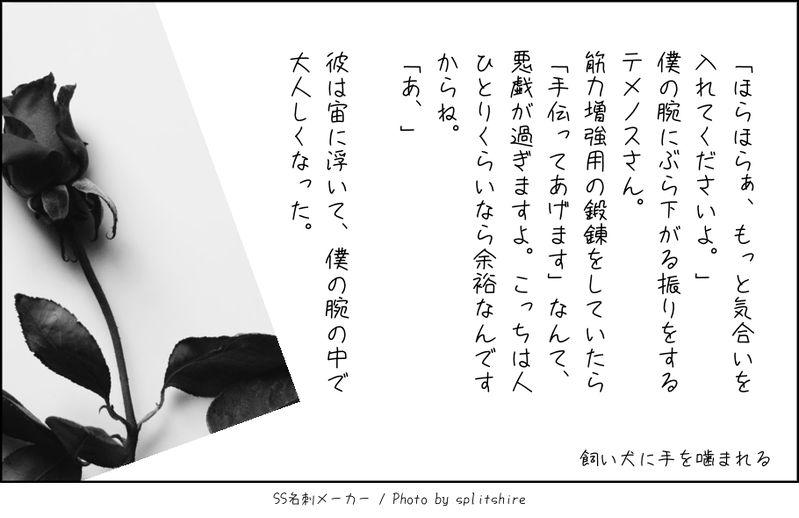 「ほらほらぁ、もっと気合いを
入れてくださいよ。」
僕の腕にぶら下がる振りをする
テメノスさん。
筋力増強用の鍛錬をしていたら
「手伝ってあげます」なんて、
悪戯が過ぎますよ。こっちは人
ひとりくらいなら余裕なんです
からね。
「あ、」
彼は宙に浮いて、僕の腕の中で
大人しくなった。
飼い犬に手を噛まれる
SS名刺メーカー / Photo by splitshire